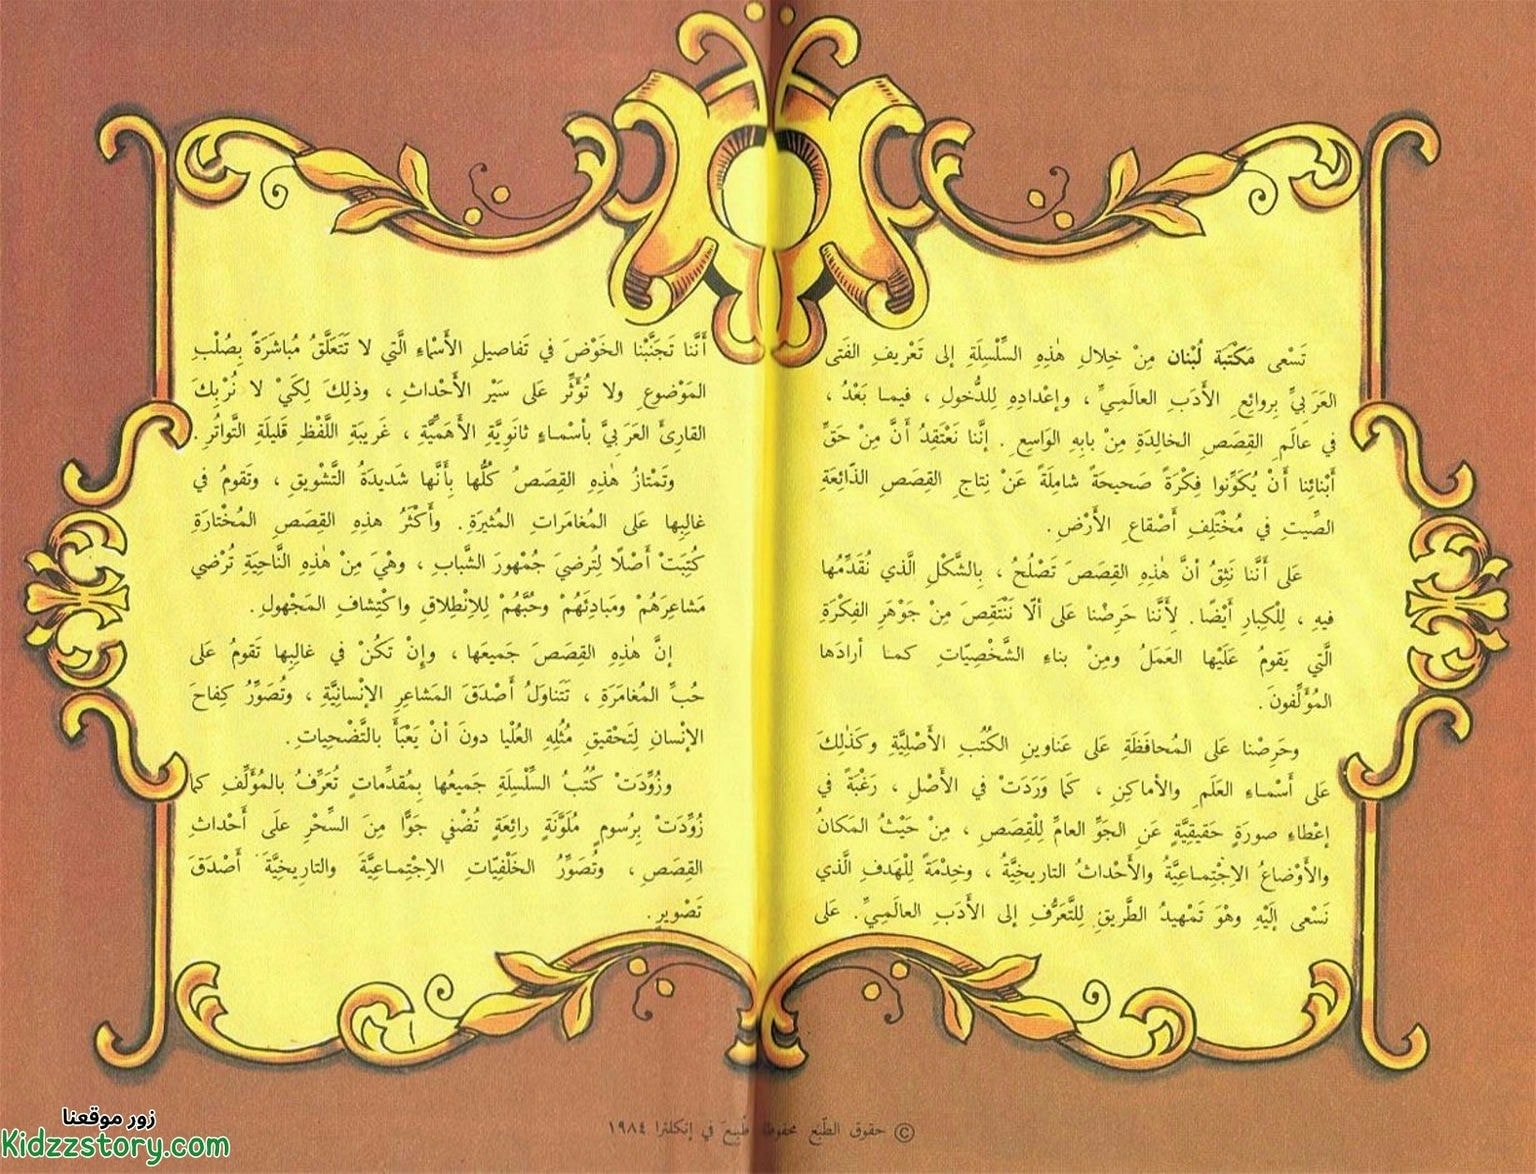 تَسْعى مَكْتَبَة لُبْنان مِنْ خِلالِ هٰذِهِ السِّلْسِلَةِ إلى تَعْريفِ الفَتى
العَرَبِيِّ بِروائِعِ الأَدَبِ العالَمِيِّ ، وإعْدادِهِ لِلدُّخولِ ، فيما بَعْدُ ،
في عالَمِ القِصَصِ الخالِدَةِ مِنْ بابِهِ الوَاسِعِ . إنَّنا نَعْتَقِدُ أَنَّ مِنْ حَقِّ
أَبْنائِنا أَنْ يُكَوِّنوا فِكْرَةً صَحيحَةً شامِلَةً عَنْ نِتاجِ القِصَصِ الذّائِعَةِ
الصِّيتِ في مُخْتَلِفِ أَصْقاعِ الأَرْضِ .
عَلى أَنَّنا نَثِقُ أَنَّ هٰذِهِ القِصَصَ تَصْلُحُ ، بِالشَّكْلِ الَّذي نُقَدِّمُها
فيهِ ، لِلْكِبارِ أَيْضًا . لِأَنَّنا حَرِصْنا عَلى أَلّا نَنْتَقِصَ مِنْ جَوْهَرِ الفِكْرَةِ
الَّتي يَقومُ عَلَيْها العَمَلُ ومِنْ بناءِ الشَّخْصِيّاتِ كما أرادَها
المُؤَلِّفونَ .
وحَرِصْنا عَلى المُحافَظَةِ عَلى عَناوينِ الكُتُبِ الأَصْلِيَّةِ وكَذٰلِكَ
عَلى أَسْماءِ العَلَمِ والأماكِنِ ، كَما وَرَدَتْ في الأَصْلِ ، رَغْبَةً في
إعْطاءِ صورَةٍ حَقيقِيَّةٍ عَنِ الجَوِّ العامِّ لِلْقِصَصِ ، مِنْ حَيْثُ المَكانُ
والأَوْضاعُ الاِجْتِماعِيَّةُ والأَحْداثُ التاريخيَّةُ ، وخِدْمَةً لِلْهَدَفِ الَّذي
نَسْعى إلَيْهِ وهْوَ تَمْهيدُ الطَّريقِ لِلتَّعَرُّفِ إلى الأَدَبِ العالَمِيِّ . عَلى
أَنَّنا تَجَنَّبْنا الخَوْضَ في تَفاصيلِ الأَسْماءِ الَّتي لا تَتَعَلَّقُ مُباشَرَةً بِصُلْبِ
المَوْضوعِ ولا تُؤَثِّر عَلى سَيْر الأَحْداثِ ، وذلِكَ لِكَيْ لا نُرْبِكَ
القارِئَ العَرَبِيَّ بأَسْماءٍ ثانَوِيَّةِ الأَهَمِّيَّةِ ، غَريبَةِ اللَّفْظِ قَليلَةِ التَّواتُرِ .
وتَمْتازُ هٰذِهِ القِصَصُ كُلُّها بِأَنَّها شَديدَةُ التَّشْويقِ ، وتَقومُ في
غالِبِها عَلى المُغامَراتِ المُثيرَةِ . وأَكْثَرُ هذهِ القِصَصِ المُخْتارَةِ
كُتِبَتْ أَصْلًا لِتُرضيَ جُمْهورَ الشَّبابِ ، وهْيَ مِنْ هٰذِهِ النَّاحِيَةِ تُرْضي
مَشاعِرَهُمْ ومَبادِئَهُمْ وحُبَّهُمْ لِلاِنْطِلاقِ واكْتِشافِ المَجْهولِ .
إنَّ هٰذِهِ القِصَصَ جَميعَها ، وإنْ تَكُنْ في غالِبِها تَقومُ عَلى
حُبِّ المُغامَرَةِ ، تَتَناوَلُ أَصْدَقَ المَشاعِرِ الإنْسانِيَّةِ ، وتُصَوِّرُ كِفاحَ
الإنْسانِ لِتَحْقيقِ مُثُلِهِ العُلْيا دونَ أنْ يَعْبَأَ بالتَّضْحِياتِ .
وزُوِّدَتْ كُتُبُ السِّلْسِلَةِ جَميعُها بِمُقدِّماتٍ تُعَرِّفُ بالمُؤَلِّفِ كما
زُوِّدَتْ بِرُسومٍ مُلَوَّنَةٍ رائِعَةٍ تُضْفي جَوًّا مِنَ السِّحْرِ عَلَى أَحْداثِ
القِصَصِ ، وتُصَوِّرُ الخَلْفِيّاتِ الاِجْتِماعِيَّةَ والتاريخيَّةَ أَصْدَقَ
تَصْويرٍ .
© حقوق الطّبع محفوظة طُبِعَ في إنكلترا ١٩٨٤
زور موقعنا
Kidzzstory.com